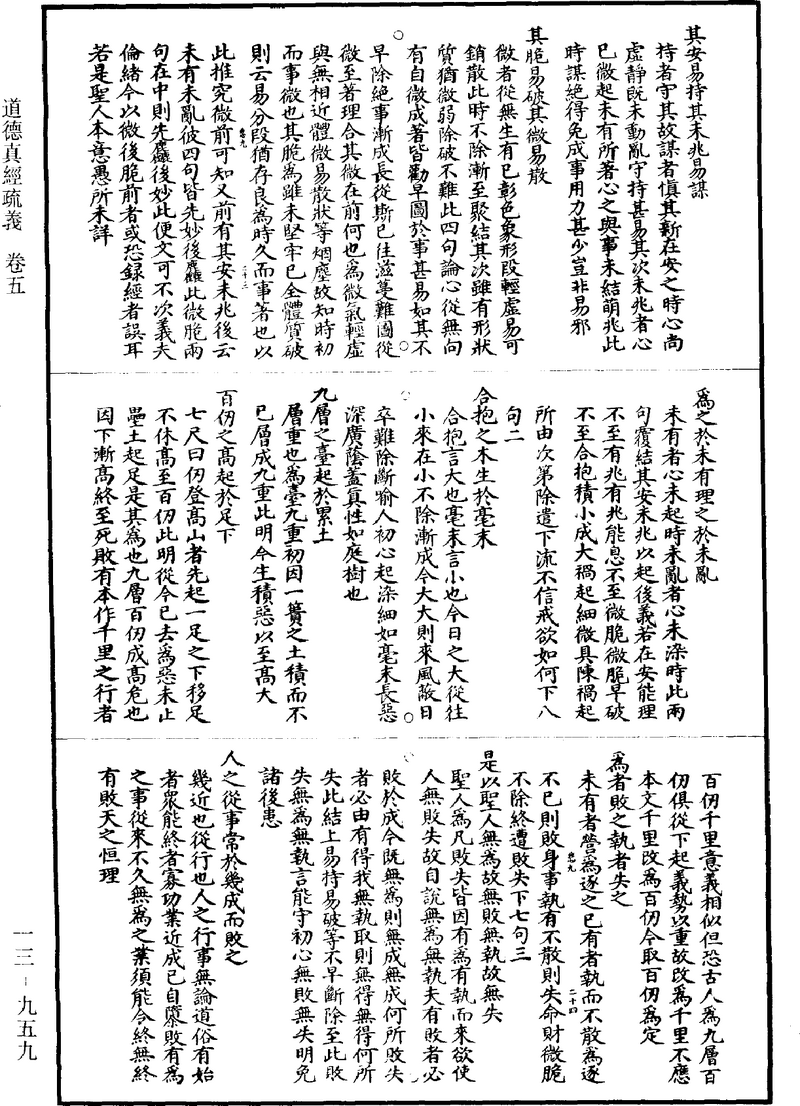 道德真經疏義　卷五
其安易持其未兆易謀
持者守其故謀者慎其新在安之時心尚
虛靜既未動亂守持甚易其次未兆者心
已微起未有所著心之與事未結萌兆此
時謀絕得免成事用力甚少豈非易邪
其脆易破其微易散
微者從無生有已彰色象形段輕虛易可
銷散此時不除漸至聚結其次雖有形狀
質猶微弱除破不難此四句論心從無向
有自微成著皆勸早圖於事甚易如其不
早除絕事漸成長從斯已往滋蔓難圖從
微至著理合其微在前何也為微氣輕虛
與無相近體微易散狀等烟塵故知時初
而事微也其脆為雖未堅牢已全體質破
則云易分段猶存良為時久而事著也以
此推究微前可知又前有其安未兆後云
未有未亂彼四句皆先妙後麤此微脆兩
句在中則先麤後妙此便文可不次義夫
倫緒今以微後脆前者或恐録經者誤耳
若是聖人本意愚所未詳
為之於未有理之於未亂
未有者心未起時未亂者心未染時此兩
句覆結其安未兆以起後義若在安能理
不至有兆有兆能息不至微脆微脆早破
不至合抱積小成大禍起細微具陳禍起
所由次第除遣下流不信戒欲如何下八
句二
合抱之木生於毫末
合抱言大也毫末言小也今日之大從往
小來在小不除漸成今大大則來風敵日
卒難除斷喻人初心起染細如毫末長惡
深廣蔭蓋真性如庭樹也
九層之臺起於累土
層重也為臺九重初因一簣之土積而不
已層成九重此明今生積惡以至高大
百仞之高起於足下
七尺曰仞登高山者先起一足之下移足
不休高至百仞此明從今已去為惡未止
壘土起足是其為也九層百仞成高危也
因下漸高終至死敗有本作千里之行者
百仞千里意義相似但恐古人為九層百
仞俱從下起義勢以重故改為千里不應
本文千里改為百仞今取百仞為定
為者敗之執者失之
未有者營為逐之已有者執而不散為逐
不已則敗身事執有不散則失命財微脆
不除終遭敗失下七句三
是以聖人無為故無敗無執故無失
聖人為凡敗失皆因有為有執而來欲使
人無敗失故自說無為無執夫有敗者必
敗於成今既無為則無成無成何所敗失
者必由有得我無執取則無得無得何所
失此結上易持易破等不早斷除至此敗
失無為無執言能守初心無敗無失明免
諸後患
人之從事常於幾成而敗之
幾近也從行也人之行事無論道俗有始
者衆能終者寡功業近成已自隳敗有為
之事從來不久無為之業須能令終無終
有敗天之恒理
一三‐九五九